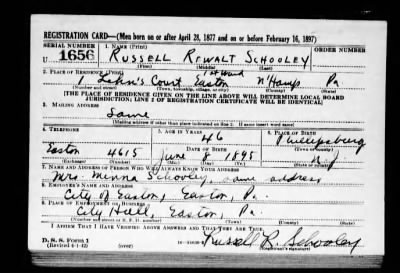 REGISTRATION CARD—(Men born on or after April 28, 1877 and on or before February 16, 1897)
SERIAL NUMBER
1. NAME (Print)
ORDER NUMBER
U 1656
RUSSELL RIWALT SCHOOLEY
(First) (Middle) (Last)
2. PLACE OF RESIDENCE (Print)
1st Ward
1, Lehn's Court, Easton N'Hamp Pa
(Number and street) (Town, township, village, or city) (County) (State)
[THE PLACE OF RESIDENCE GIVEN ON THE LINE ABOVE WILL DETERMINE LOCAL BOARD
JURISDICTION; LINE 2 OF REGISTRATION CERTIFICATE WILL BE IDENTICAL]
3. MAILING ADDRESS
Same
[Mailing address if other than place indicated on line 2. If same insert word same]
4. TELEPHONE
5. AGE IN YEARS
46
6. PLACE OF BIRTH
Phillipsburg
DATE OF BIRTH
(Town or county)
Easton 4615
June 8 1895
N.J.
(Exchange) (Number)
(Mo.) (Day) (Yr.)
(State or country)
7. NAME AND ADDRESS OF PERSON WHO WILL ALWAYS KNOW YOUR ADDRESS
Mrs. Minna Schooley, same address
8. EMPLOYER'S NAME AND ADDRESS
City of Easton, Easton, Pa.
9. PLACE OF EMPLOYMENT OR BUSINESS
City Hall, Easton, Pa.
(Number and street or R. F. D. number) (Town) (County) (State)
I AFFIRM THAT I HAVE VERIFIED ABOVE ANSWERS AND THAT THEY ARE TRUE.
D. S. S. Form 1
(Revised 4-1-42)
Russell R. Schooley
(Registrant's signature)